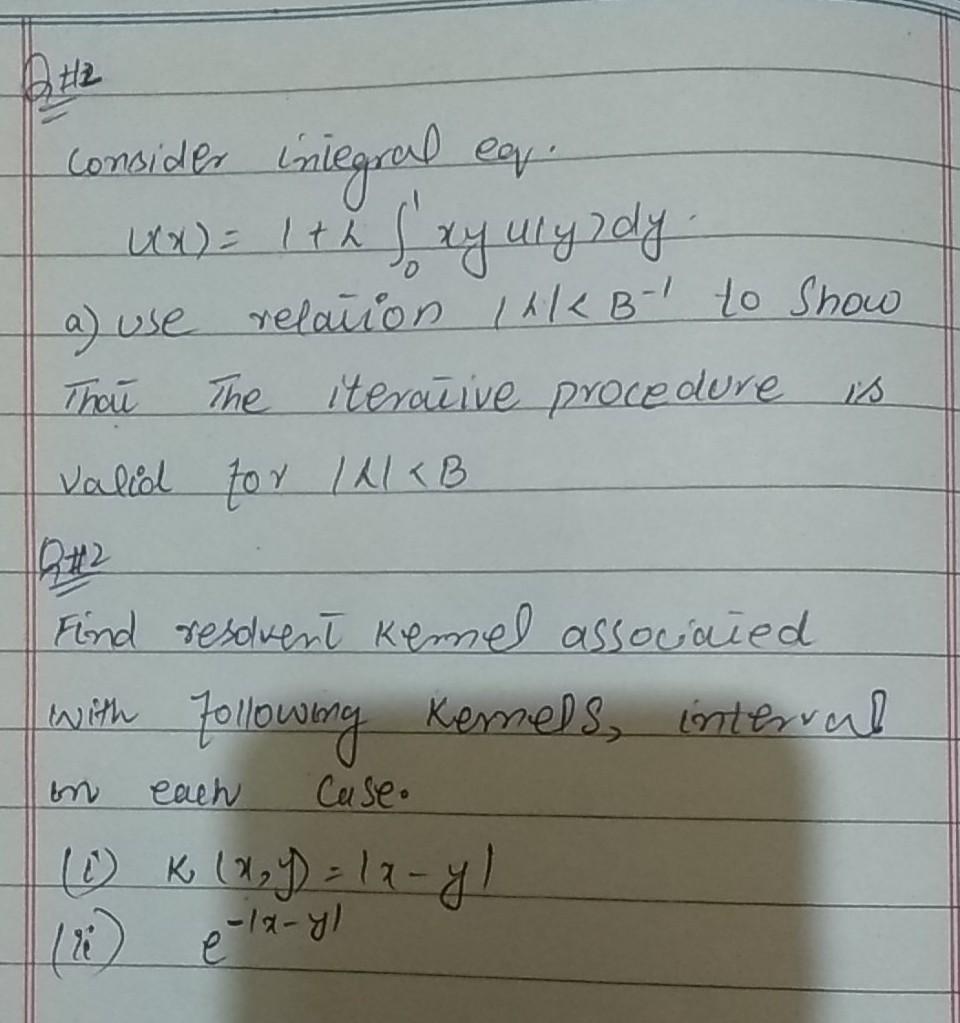 Q#2
Consider integral eq.
u(x) = 1 + λ ∫₀¹ xy u(y) dy.
a) use relation |λ| < B⁻¹ to Show
That The iterative procedure is
valid for |λ| < B
Q#2
Find resolvent kernel associated
with following kernels, interval
in each case.
(i) K(x,y) = |x-y|
(ii) e^{-|x-y|}